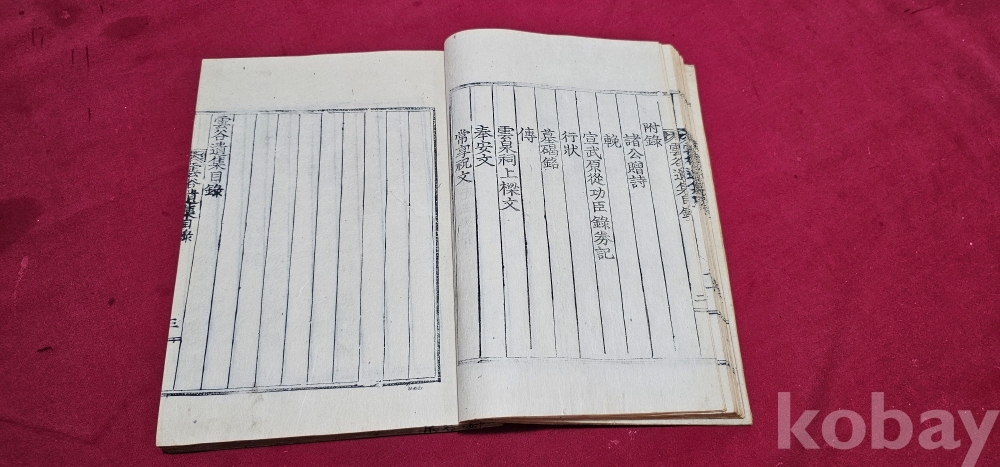 雲谷遺集目錄
二
附錄
諸公贈詩
輓
宣武原從功臣錄券記
行狀
墓碣銘
傳
雲泉祠上樑文
奉安文
常享祝文
雲谷遺集目錄
雲谷遺集目錄
三
kobay